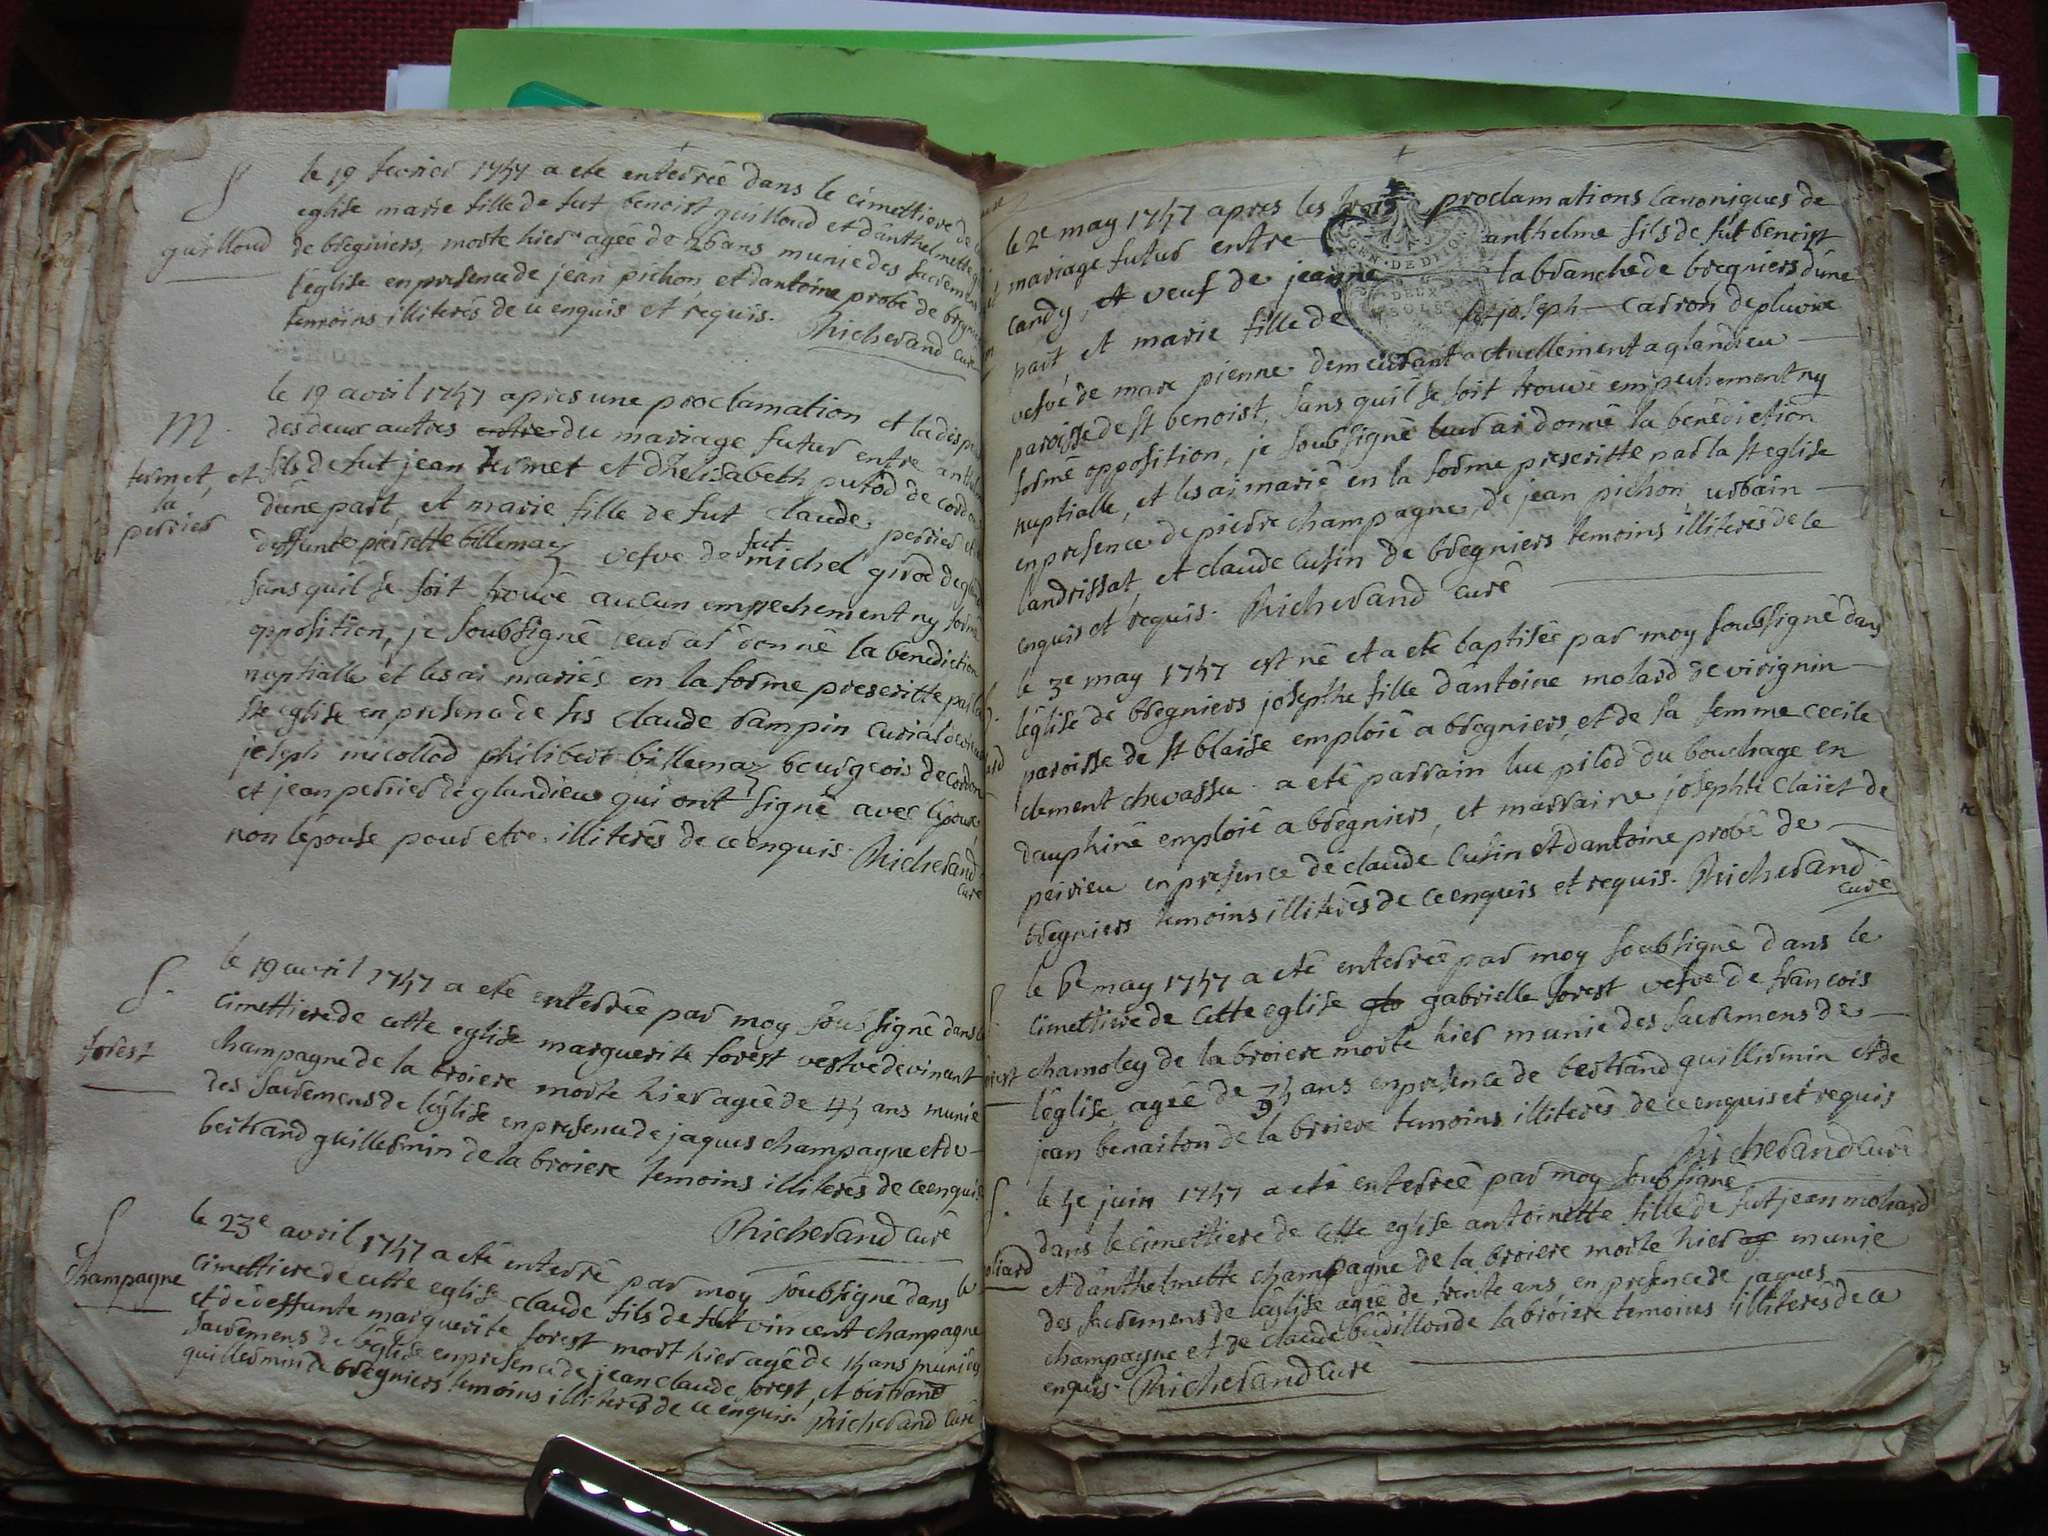 S
guilloud
le 19 fevrier 1757 a eté enterrée dans le cimettiere de
eglise marie fille de fut benoist guilloud et d'anthelmette
de bregniers, morte hier agée de 26 ans munie des sacremens
l'eglise en presence de jean pichon et d'antoine probé de
temoins illiterés de ce enquis et requis.
Richerand curé
M.
termet, et
la
perrier
le 19 avril 1757 apres une proclamation et la
des deux autres entre du mariage futur entre
fils de fut jean termet et d'helisabeth putod de
d'une part, et marie fille de fut claude perrier et
deffunte pierrette billemaz vefve de fut michel girod de
sans quil se soit trouvé aucun empechement ny formé
opposition, je soubsigné leur ai donné la benediction
nuptialle et les ai mariés en la forme prescritte par la
ste eglise en presence de srs claude rampin curial de
joseph micollod philibert billemaz bourgeois de cordon
et jean perrier de glandieu qui ont signé avec l'epoux
non l'epouse pour etre illiterés de ce enquis. Richerand
curé
S.
forest
le 19 avril 1757 a eté enterrée par moy soussigné dans le
cimettiere de cette eglise marguerite forest vefve de vincent
champagne de la broiere morte hier agée de 45 ans munie
des sacremens de l'eglise en presence de jaques champagne et de
bertrand guillermin de la broiere temoins illiterés de ce enquis
Richerand curé
S
Champagne
le 23e avril 1757 a eté enterré par moy soubsigné dans le
cimettiere de cette eglise claude fils de fut vincent champagne
et de deffunte marguerite forest mort hier agé de 15 ans muni des
sacremens de l'eglise en presence de jean claude forest, et bertrand
guillermin de bregniers temoins illiterés de ce enquis. Richerand curé
le 2e may 1757 apres les trois proclamations canoniques de
mariage futur entre anthelme fils de fut benoist
GEN. DE DIJON
DEUX
SOLS
candy, et veuf de jeanne labranche de bregniers d'une
part, et marie fille de joseph carron de pluvoise
vefve de marc pienne demeurant actuellement a glandieu
paroisse de st benoist, sans quil se soit trouvé empechement ny
formé opposition, je soubsigné leur ai donné la benediction
nuptialle, et les ai marié en la forme prescritte par la st eglise
en presence de pierre champagne, de jean pichon, urbain
landrissat, et claude cusin de bregniers temoins illiterés de ce
enquis et requis. Richerand curé
le 3e may 1757 est né et a eté baptisée par moy soubsigné dans
l'eglise de bregniers josepthe fille d'antoine molard de virignin
paroisse de st blaise emploié a bregniers, et de sa femme cecile
clement chevassu. a eté parrain luc pilod du bouchage en
dauphiné emploié a bregniers, et marraine josephte claiet de
peirieu en presence de claude cusin et d'antoine probé de
bregniers temoins illiterés de ce enquis et requis. Richerand
curé
S
forest
le 6e may 1757 a eté enterrée par moy soubsigné dans le
cimettiere de cette eglise gabrielle forest vefve de francois
chamoley de la broiere morte hier munie des sacremens de
l'eglise, agée de 35 ans en presence de bertrand guillermin et de
jean benaiton de la broiere temoins illiterés de ce enquis et requis
Richerand curé
S.
moliard
le 5e juin 1757 a eté enterrée par moy soubsigné
dans le cimettiere de cette eglise antoinette fille de fut jean moliard
et d'anthelmette champagne de la broiere morte hier munie
des sacremens de l'eglise agée de trente ans, en presence de jaques
champagne et de claude budillon de la broiere temoins illiterés de ce
enquis. Richerand curé